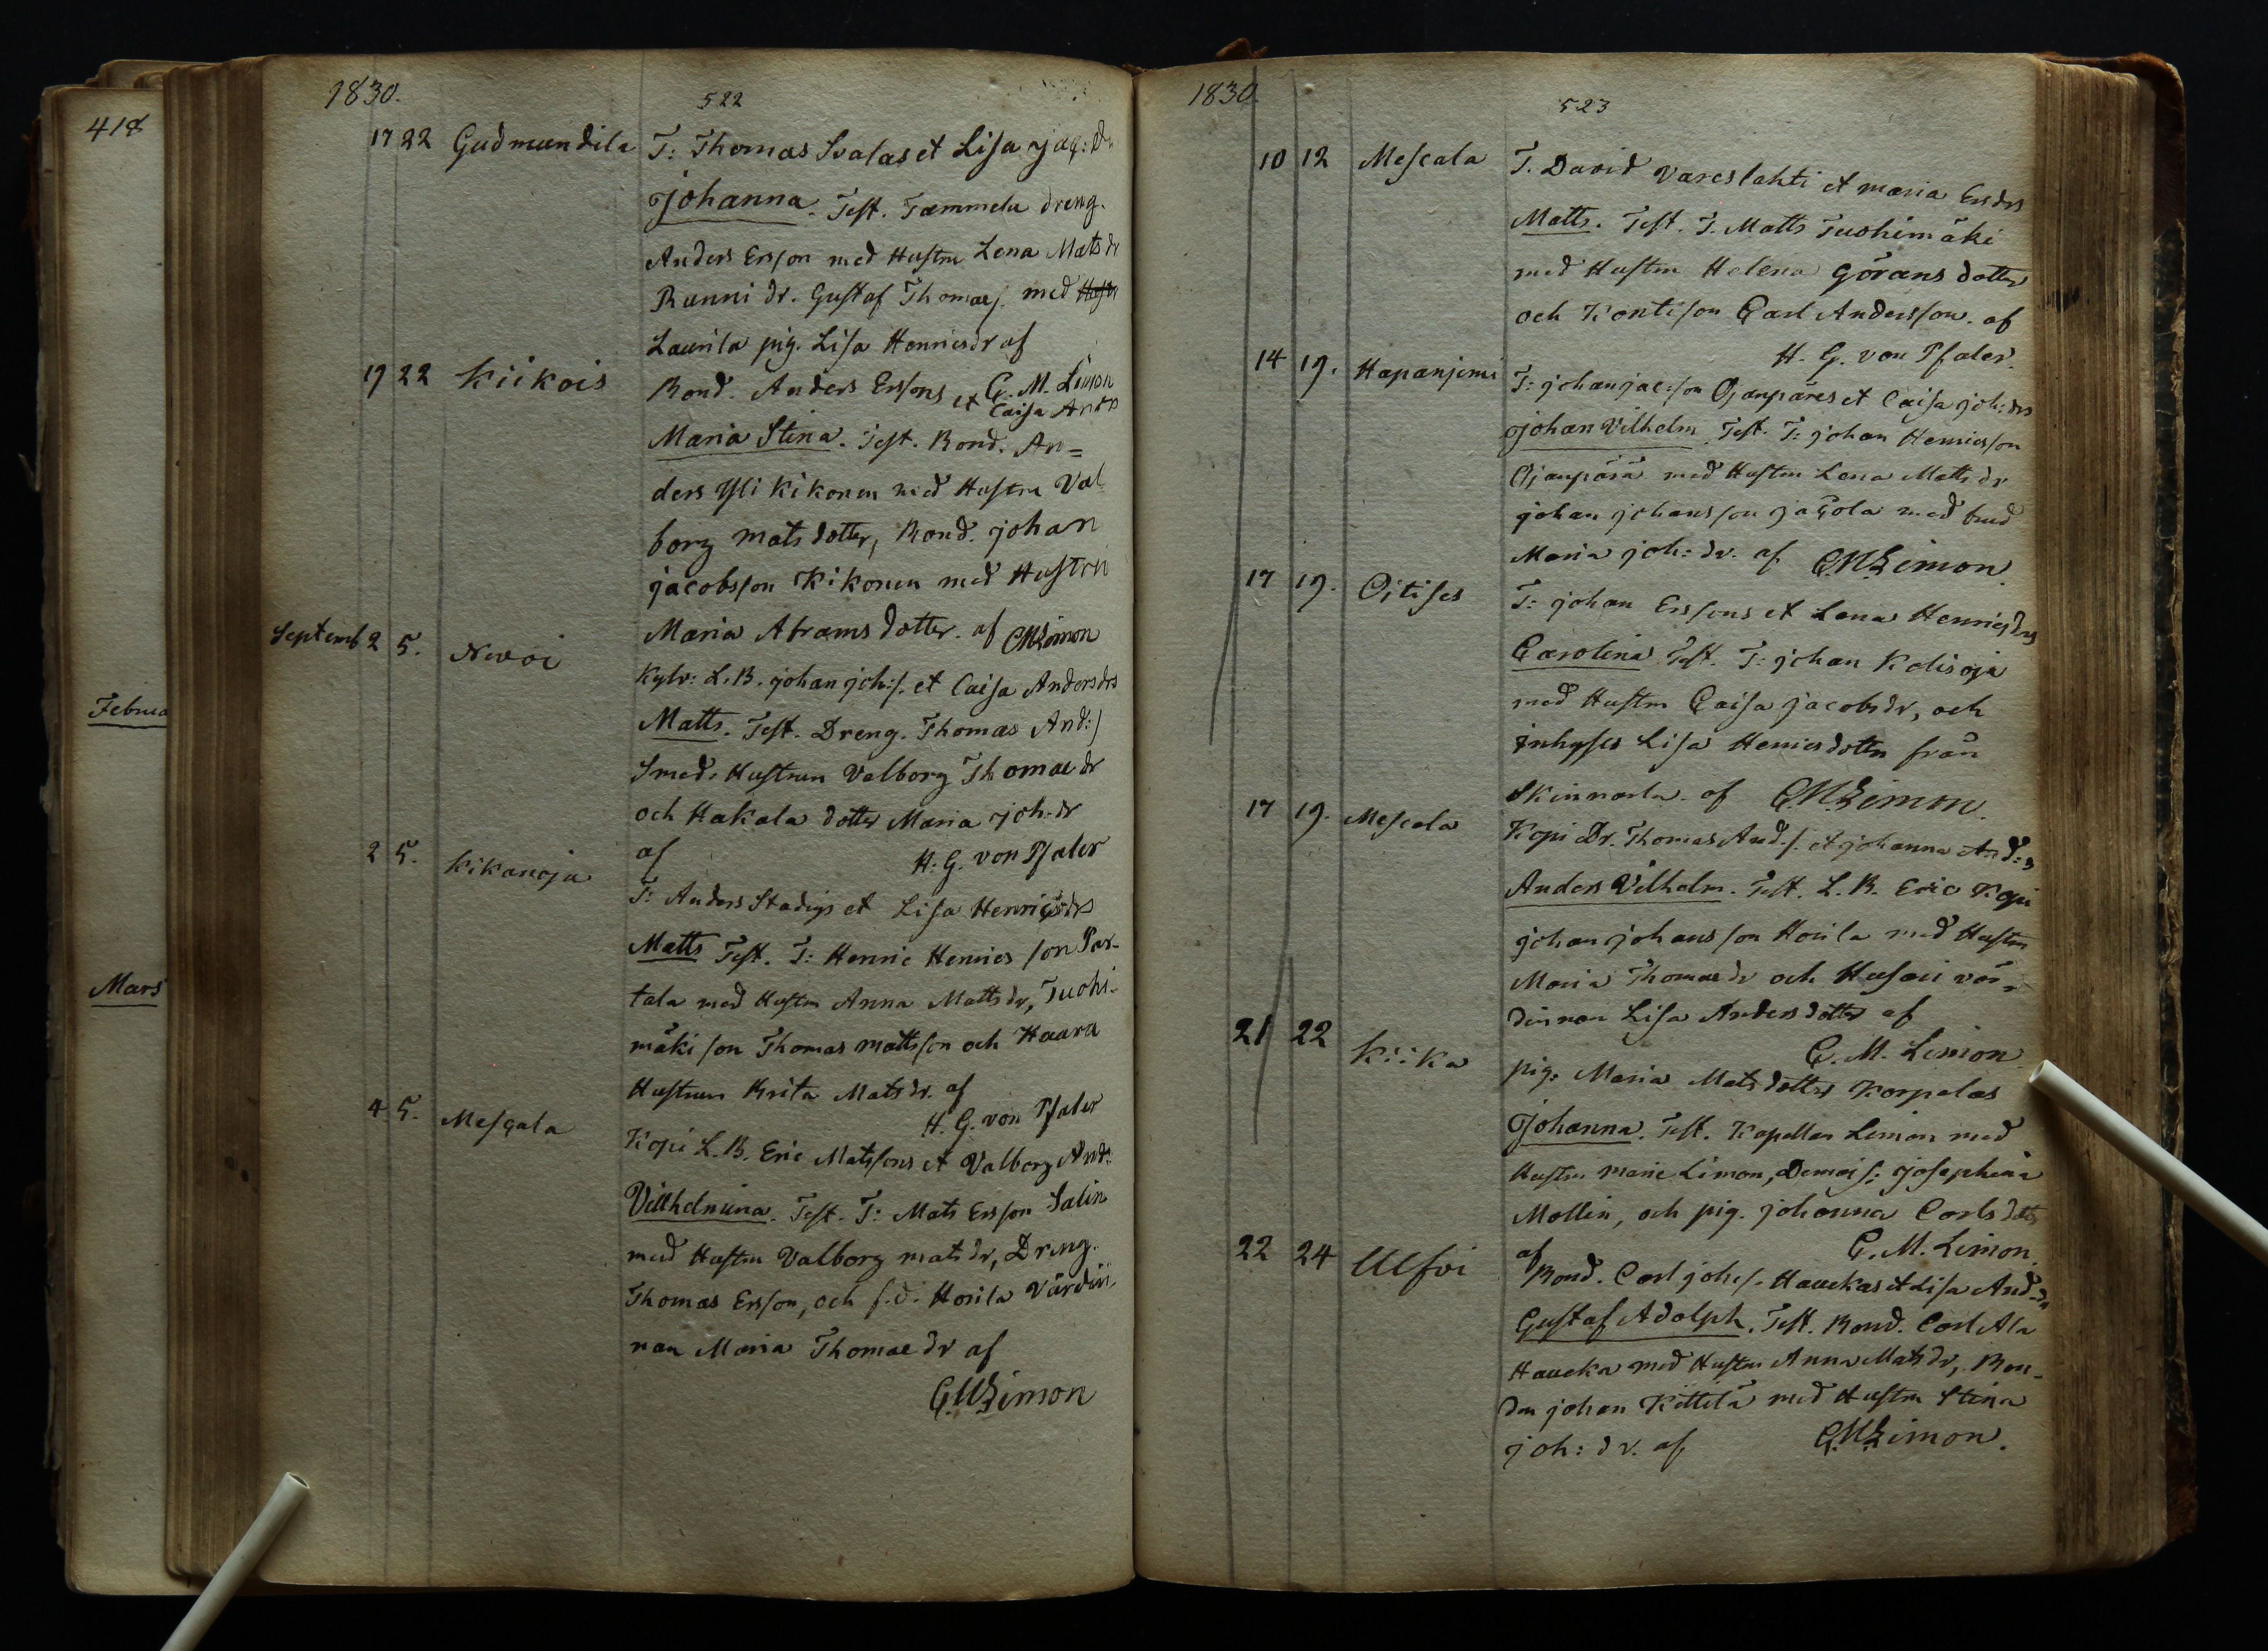 418
Februa
Mars
1830.
522
17 22 Gudmundila T: Thomas Svasas et Lisa Jaq: dr
Johanna. Test. Tammela dreng.
Anders Ersson med Hustru Lena Matsdr
Runni dr. Gustaf Thomas. med
Laurila pig. Lisa Henricsdr af
C. M. Limon
19 22 Kiikois Bond. Anders Erssons et Caisa Andrs
Maria Stina. Test. Bond. An=
ders Yli Kikonen med Hustru Val
borg matsdotter, Bond. johan
jacobsson Kikonen med Hustru
Maria Abramsdotter. af CMLimon
Septemb 2 5. Nivoi Kylv: L. B. johan joh:s. et Caisa Andersdrs
Matts. Test. Dreng. Thomas And:s
Smed. Hustrun Valborg Thomaedr
och Hakala dotter Maria joh:dr
af H: G. von Pfaler
2 5. Kikanoja T: Anders Stadigs et Lisa Henricsdrs
Matts Test. T: Henric Henricsson Par-
tala med Hustru Anna Mattsdr, Tuohi-
mäki son Thomas mattsson och Haara
Hustrun Brita Matsdr. af
H. G. von Pfaler
4 5. Mescala Kopi L. B. Eric Matssons et Valborg And:
Villhelmina. Test. T: Mats Ersson Salin
med Hustru Valborg matsdr, Dreng.
Thomas Ersson, och f.d. Horila Värdin-
nan Maria Thomaedr af
CMLimon
1830.
523
10 12 Mescala T. David Vareslahti et maria Ersdrs
Matts. Test. T. Matts Tuohimäki
med Hustru Helena Göransdotter
och Kontison Carl Andersson. af
H. G. von Pfaler.
14 19. Hapanjemi T: johan jac:son Ojanpäres et Caisa joh:drs
johan Vilhelm. Test. T: johan Henricsson
Ojanpärä med Hustru Lena Mattsdr
johan johansson jaCola med brud
Maria joh:dr. af CMLimon.
17 19. Oitises T: johan Erssons et Lena Henricsdrs
Carolina. Test. T: johan Kalisoja
med Hustru Caisa jacobsdr, och
inhyses Lisa Henricsdotter från
Skinnarla. af CMLimon.
17 19. Mescala Kopi Dr. Thomas And:s. et johanna And:s
Anders Vilhelm. Test. L. B. Eric Kopi
johan johansson Horila med Hustru
Maria Thomaedr och Husari vär=
dinnan Lisa Andersdotter af
C. M. Limon
21 22 Kiika pig: Maria Matsdotters Korpelas
Johanna. Test. Kapellan Limon med
Hustru marie Limon, Demois: josephina
Mollin, och pig. johanna Carlsdotter
af C. M. Limon.
22 24 Ulfvi Bond. Carl joh:s. Hauckas et Lisa And:dr
Gustaf Adolph. Test. Bond. Carl Ala
Haucka med Hustru Anna Matsdr, Bon-
den johan Kittilä med Hustru Stina
joh:dr. af CMLimon.